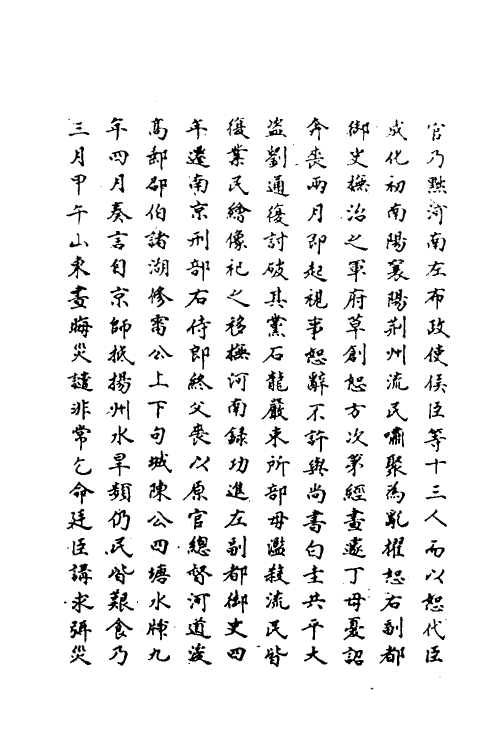 官乃黜河南左布政使侯臣等十三人而以恕代臣
成化初南陽襄陽荆州流民嘯聚為亂擢恕右副都
御史撫治之軍府草創恕方次第經畫遽丁母憂詔
奔喪兩月即起視事恕辭不許與尚書白圭共平大
盜劉通復討破其黨石龍嚴束所部毋濫殺流民皆
復業民繪像祀之移撫河南録功進左副都御史四
年遷南京刑部右侍郎終父喪以原官總督河道浚
髙郵邵伯諸湖修雷公上下句城陳公四塘水牐九
年四月奏言自京師抵揚州水旱頻仍民皆艱食乃
三月甲午山東晝晦災譴非常乞命廷臣講求弭災